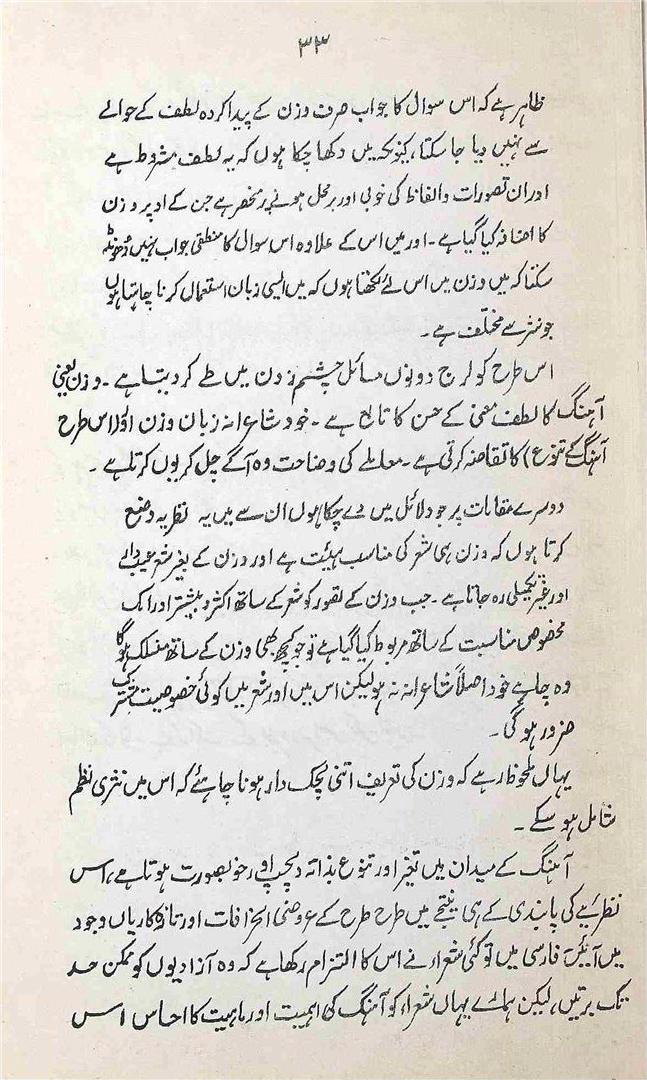 ۳۳
ظاہر ہے کہ اس سوال کا جواب صرف وزن کے پیدا کردہ لطف کے حوالے
سے نہیں دیا جا سکتا، کیونکہ میں دکھا چکا ہوں کہ یہ لطف مشروط ہے
اور ان تصورات والفاظ کی خوبی اور برمحل ہونے پر منحصر ہے جن کے اوپر وزن
کا اضافہ کیا گیا ہے۔ اور میں اس کے علاوہ اس سوال کا منطقی جواب نہیں ڈھونڈھ
سکتا کہ میں وزن میں اس لئے لکھتا ہوں کہ میں ایسی زبان استعمال کرنا چاہتا ہوں
جو نثر سے مختلف ہے۔
اس طرح کولرج دونوں مسائل چشم زدن میں طے کر دیتا ہے۔ وزن یعنی
آہنگ کا لطف معنی کے حسن کا تابع ہے۔ خود شاعرانہ زبان وزن (اور اس طرح
آہنگ کے تنوع) کا تقاضہ کرتی ہے۔ معاملے کی وضاحت وہ آگے چل کر یوں کرتا ہے۔
دوسرے مقامات پر جو دلائل میں دے چکا ہوں ان سے میں یہ نظریہ وضع
کرتا ہوں کہ وزن ہی شعر کی مناسب ہیئت ہے اور وزن کے بغیر شعر عیب دار
اور غیر تکمیلی رہ جاتا ہے۔ جب وزن کے تصور کو شعر کے ساتھ اکثر و بیشتر اور ایک
مخصوص مناسبت کے ساتھ مربوط کیا گیا ہے تو جو کچھ بھی وزن کے ساتھ منسلک ہوگا
وہ چاہے خود اصلاً شاعرانہ نہ ہو لیکن اس میں اور شعر میں کوئی خصوصیت مشترک
ضرور ہوگی۔
یہاں ملحوظ رہے کہ وزن کی تعریف اتنی لچک دار ہونا چاہئے کہ اس میں نثری نظم
شامل ہو سکے۔
آہنگ کے میدان میں تغیر اور تنوع بذاتہ دلچسپ اور خوبصورت ہوتا ہے، اس
نظریے کی پابندی کے ہی نتیجے میں طرح طرح کے عروضی انحرافات اور تازہ کاریاں وجود
میں آئیں۔ فارسی میں تو کئی شعراء نے اس کا التزام رکھا ہے کہ وہ آزادیوں کو ممکن حد
تک برتیں، لیکن ہمارے یہاں شعراء کو آہنگ کی اہمیت اور ماہیت کا احساس اس